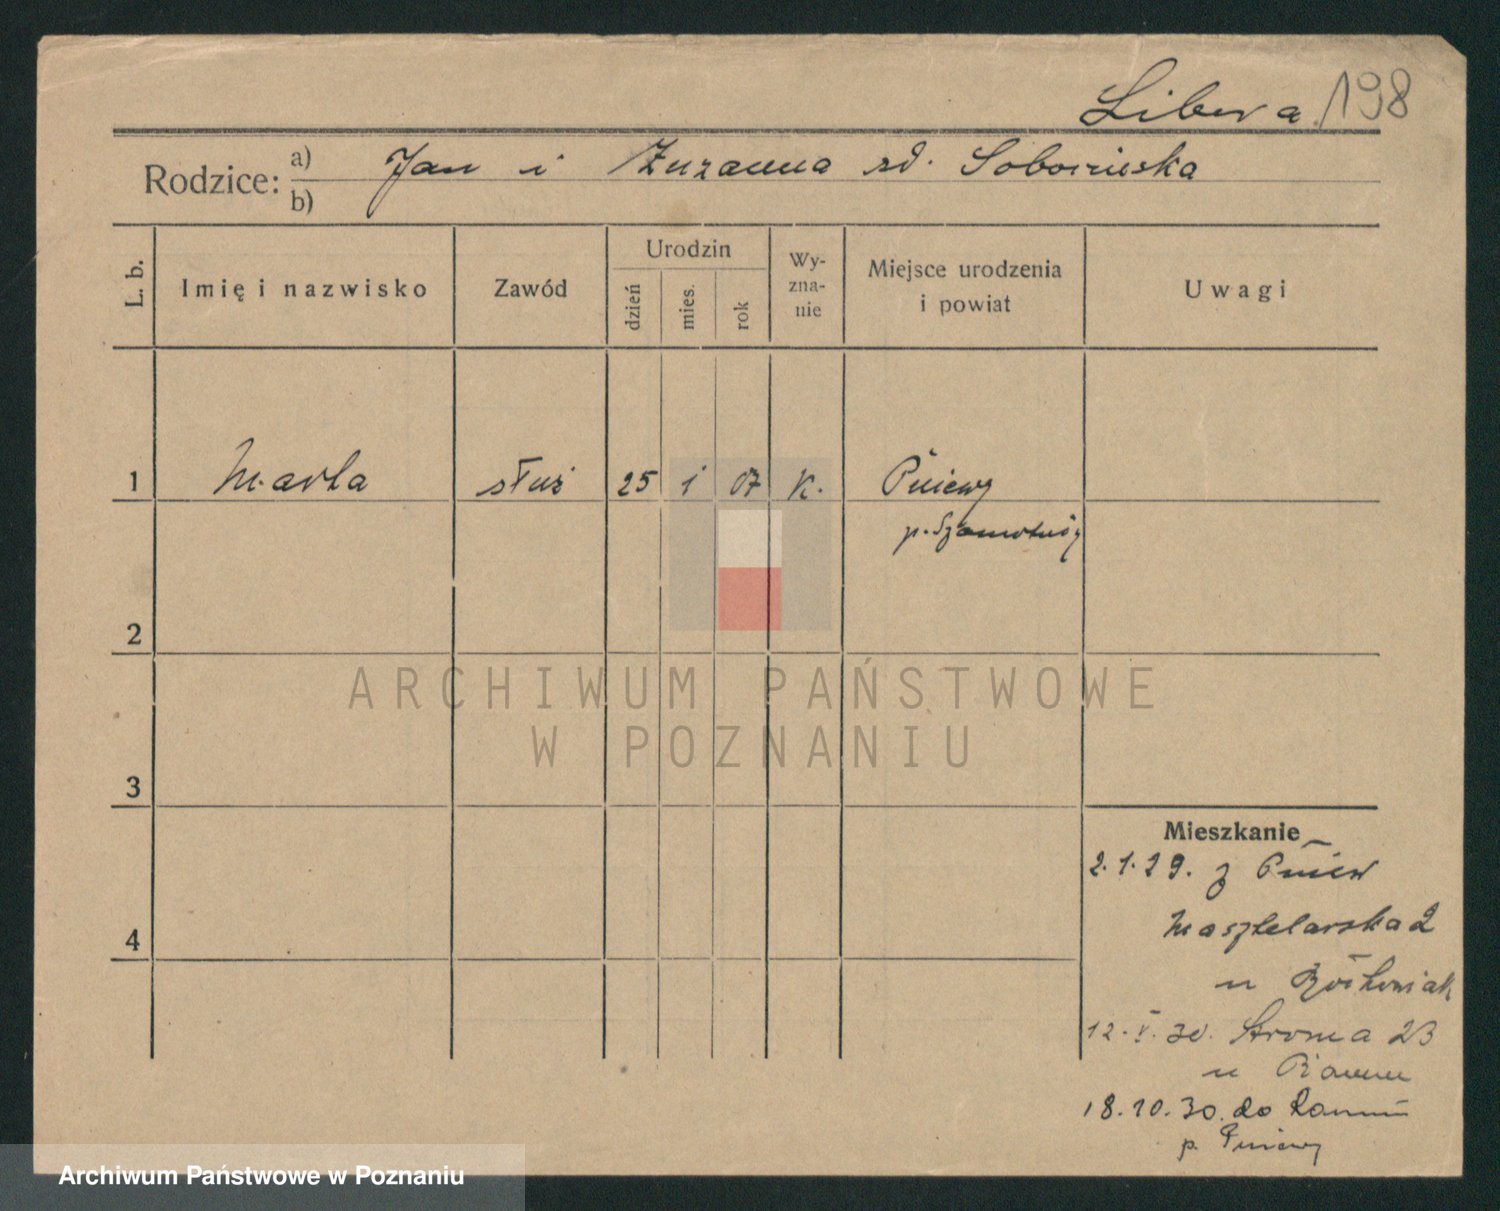 Libera 198
Rodzice: a) Jan i Zuzanna zd.
b)
L. b. Imię i nazwisko Zawód Urodzin Wy- Miejsce urodzenia Uwagi
dzień mies. rok zna- i powiat
nie
1 Marta służ 25 1 07 K. Pniewy
p. Szamotuły
2
ARCHIWUM PAŃSTWOWE
W POZNANIU
3
Mieszkanie
2.1.29. z Pniew
4 Masztelarska 2
u
12.V.30. Stroma 23
u
18.10.30. do
p. Pniewy
Archiwum Państwowe w Poznaniu